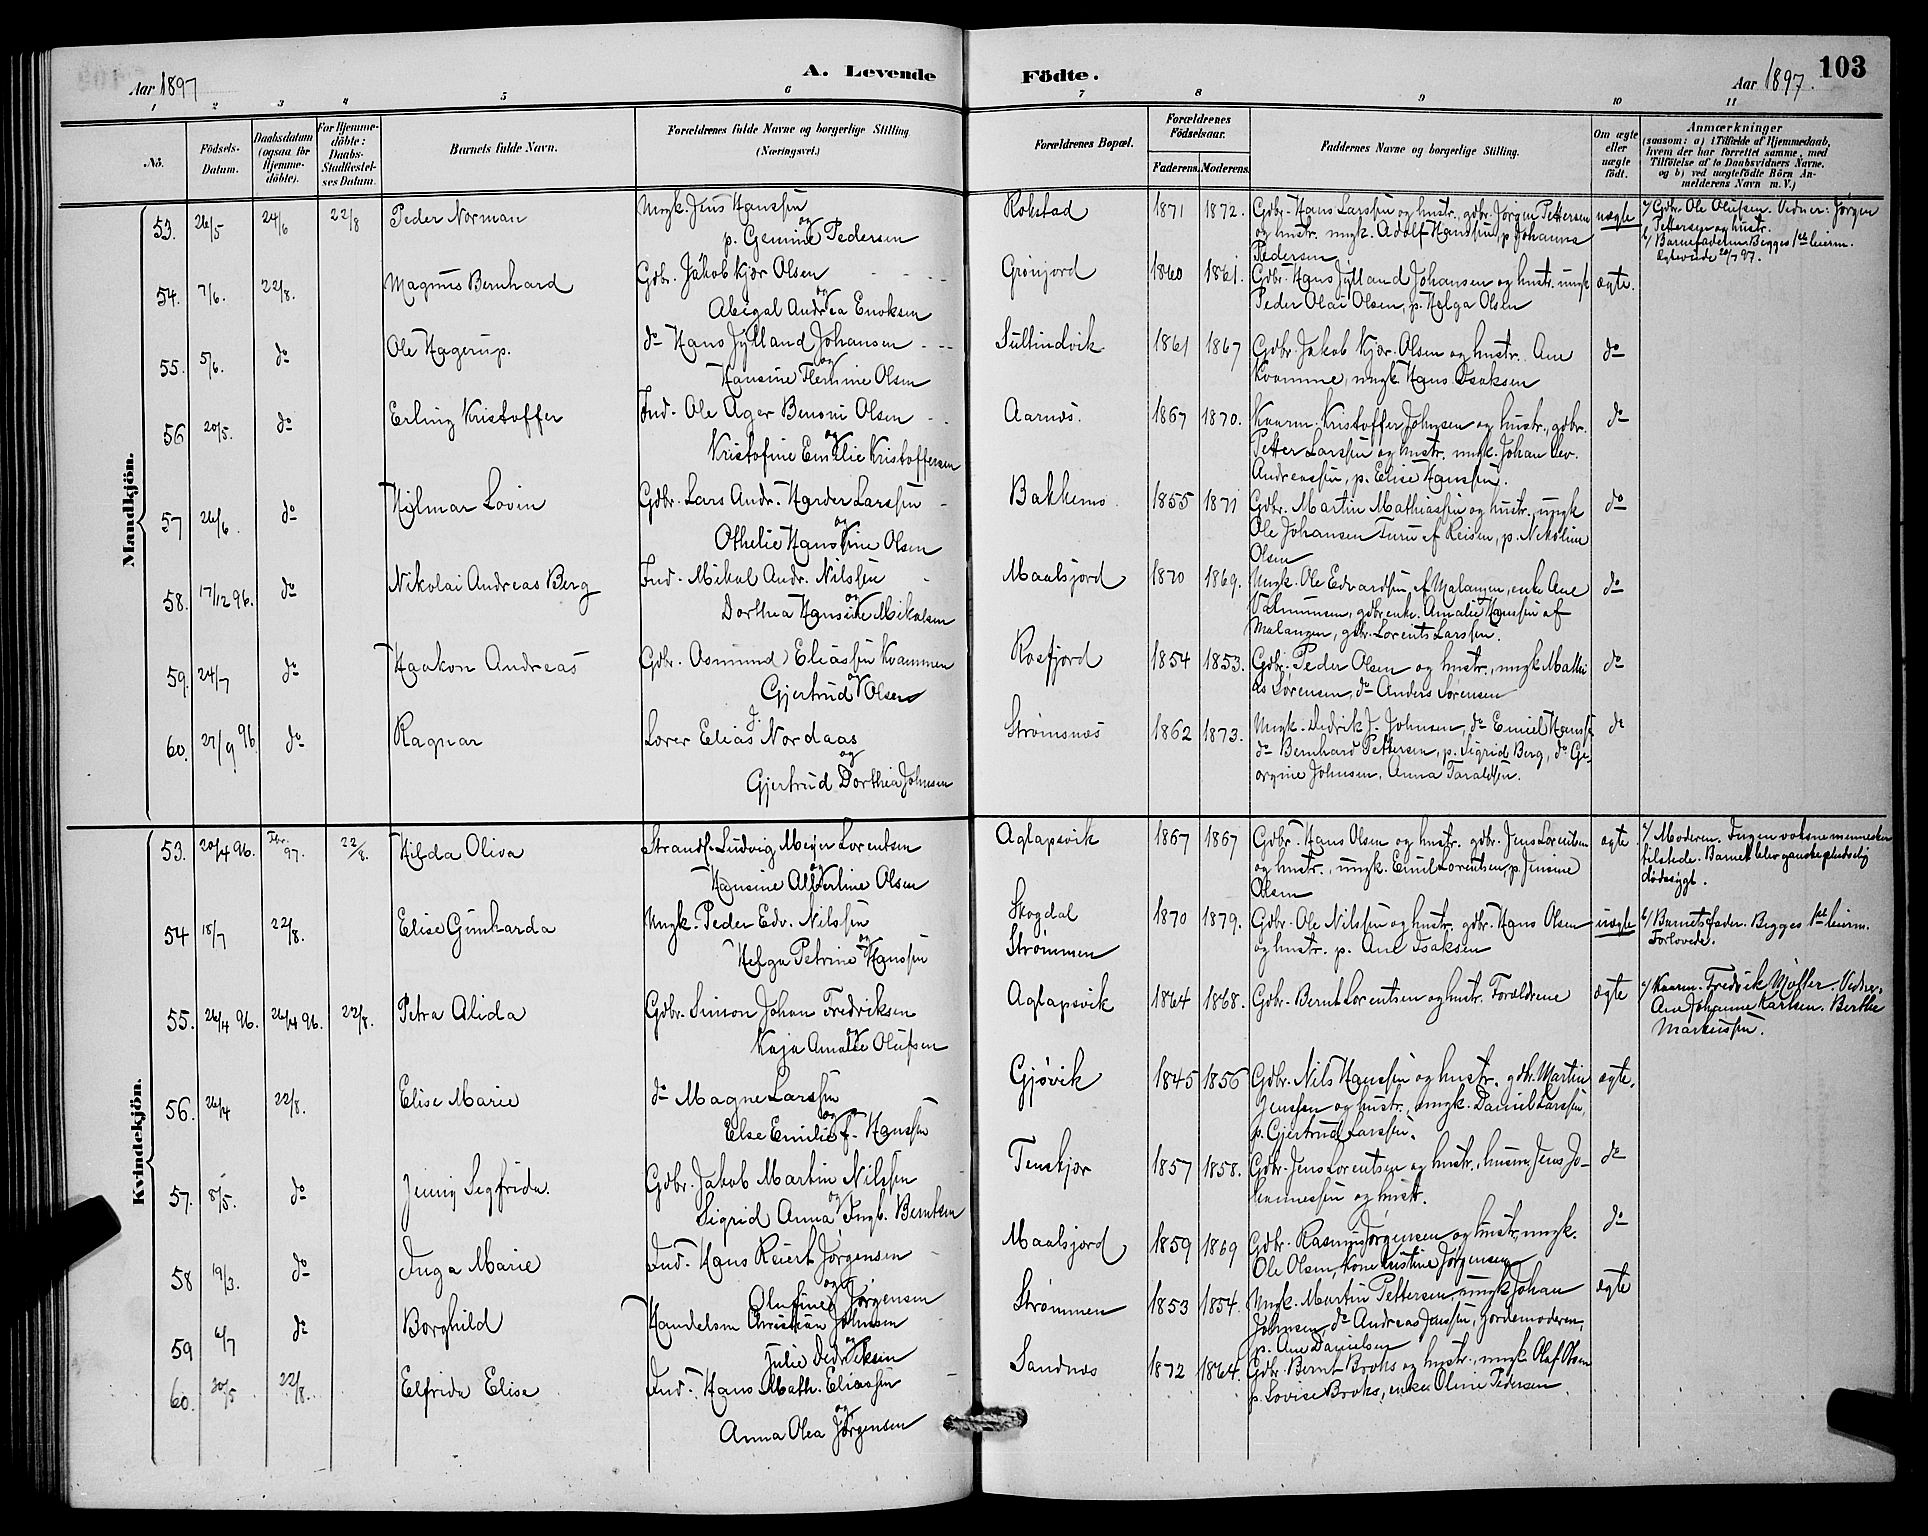 Aar 1897
A. Levende
Födte.
Aar 1897.
103
1 2 3 4 5 6 7 8 9 10 11
No.
Födsels-Datum.
Daabsdatum (ogsaa for Hjemme-döbte).
For Hjemme-döbte: Daabs-Stadfæstel-ses Datum.
Barnets fulde Navn.
Forældrenes fulde Navne og borgerlige Stilling (Næringsvei.)
Forældrenes Bopæl.
Forældrenes Födselsaar.
Faderens. Moderens.
Faddernes Navne og borgerlige Stilling.
Om ægte eller uægte födt.
Anmærkninger
(saasom: a) i Tilfælde af Hjemmedaab,
hvem der har forrettet samme, med
Tilföielse af to Daabsvidners Navne,
og b) ved uægtefödte Börn An-
melderens Navn m. V.)
Mandkjön.
53. 26/5 24/6 22/8 Peder Norman
Ungk. Jens Hanssen
og
p. Gemine Pedersen
Rokstad 1871 1872.
Gdbr. Hans Larssen og hustr., gdbr. Jørgen Pettersen
og hustr. ungk. Adolf Hanssen, p. Johanna
Pedersen
uægte
a/ Gdbr. Ole Olufsen. Vidner: Jørgen
Pettersen og hustr.
b/ Barnefaderen. Begges 1ste leierm.
Ægteviede 20/7 97.
54. 7/6. 22/8. Magnus Bernhard
Gdbr. Jakob Kjær Olsen
og
Abigal Andrea Enoksen
Grønjord 1860 1861.
Gdbr. Hans Jylland Johansen og hustr. ungk
Peder Olai Olsen, p. Helga Olsen
ægte.
55. 5/6. do Ole Hagerup.
do Hans Jylland Johansen
og
Hansine Flemine Olsen
Sultindvik 1861 1867
Gdbr. Jakob Kjær Olsen og hustr. Ane
Kvamme, ungk. Hans Isaksen
do
56 20/5. do Erling Kristoffer
Ind. Ole Ager Benoni Olsen
og
Kristofine Emelie Kristoffersen
Aarnæs. 1867 1870.
Kaarm. Kristoffer Johnsen og hustr., gdbr.
Petter Larssen og hustr. ungk. Johan Lev.
Andreassen, p. Elise Hanssen.
do
57 26/6. do Hilmar Lovin
Gdbr. Lars Andr. Harder Larssen
og
Othelie Hansine Olsen
Bakkemo. 1855 1871
Gdbr. Martin Mathiassen og hustr. ungk
Ole Johansen Turu af Reisen, p. Nikoline
Olsen
do
58. 17/12 96. do Nikolai Andreas Berg
Ind. Mikal Andr. Nilssen
og
Dorthea Hansine Mikalsen
Maalsjord 1870 1869.
Ungk. Ole Edvardsen af Malangen, enke Ane
Salmunsen, gdbr.enke Amalie Hanssen af
Malangen, gdbr. Lorents Larssen.
do
59. 24/7 do Haakon Andreas
Gdbr. Osmund Eliassen Kvammen
og
Gjertrud Olsen
Rosfjord 1854 1853.
Gdbr. Peder Olsen og hustr., ungk Mathi
as Sørensen, do Anders Sørensen
do
60. 27/9 96 do Ragnar
Lærer Elias J. Nordaas
og
Gjertrud Dorthea Johnsen
Strømsnæs 1862 1873.
Ungk. Didrik J. Johnsen, do Emiel Hanss,
do Bernhard Pettersen, p. Sigrid Berg, do Ge-
orgine Johnsen, Anna Taraldsen.
do
Kvindekjön.
53. 20/4 96. 97. 22/8. Hilda Oliva
Strands. Ludvig Meyer Lorentsen
og
Hansine Albertine Olsen
Aglapsvik 1867 1867
Gdbr. Hans Olsen og hustr. gdbr. Jens Lorentsen
og hustr., ungk. Emil Lorentsen, p. Jensine
Olsen
ægte
a/ Moderen. Ingen voksne mennesker
tilstede. Barnet blev ganske pludselig
dødssygt.
54 18/7 22/8. Elise Gunharda
Ungk. Peder Edv. Nilssen
og
Helga Petrine Hanssen
Skogdal
Strømmen
1870 1879.
Gdbr. Ole Nilssen og hustr. gdbr. Hans Olsen
og hustr. p. Ane Isaksen
uægte
b/ Barnets fader. Begges 1ste leierm.
Forlovede.
55. 26/4 96. 26/4 96. 22/8. Petra Alida
Gdbr. Simon Johan Fredriksen
og
Kaja Amalie Olufsen
Aglapsvik 1864 1868.
Gdbr. Bernt Lorentsen og hustr. Forældrene
ægte
a/ Kaarm. Fredrik Møller. Vidner.
Ane Johanne Karlsen. Berthe
Markussen.
56. 26/4 22/8. Elise Marie
do Magne Larssen
og
Else Emilie f. Hanssen
Gjøvik 1845 1856
Gdbr. Nils Hanssen og hustr. gdbr. Martin
Jenssen og hustr., ungk. Daniel Larssen,
p. Gjertrud Larssen.
ægte.
57. 8/5. do Jenny Segfrida.
Gdbr. Jakob Martin Nilssen
og
Sigrid Anna Ingb. Berntsen
Tenskjær 1857 1858.
Gdbr. Jens Lorentsen og hustr., husm. Jens Jo-
hannessen og hustr.
do
58 19/3. do Inga Marie
Ind. Hans Reiert Jørgensen
og
Olufine Jørgensen
Maalsjord 1859 1869
Gdbr. Rasmus Jørgensen og hustr., ungk.
Ole Olsen, kone Kristine Jørgensen
do
59 6/7 do Borghild
Handelsm Christian Johnsen
og
Julie Dedriksen
Strømmen 1853 1854.
Ungk. Martin Pettersen, ungk Johan
Johnsen, do Andreas Jenssen, Jordemoderen,
p. Ane Danielsen
ægte
60. 20/5 22/8. Elfrida Elise
Ind. Hans Math. Eliassen
og
Anna Olea Jørgensen
Sandnæs 1872 1864.
Gdbr. Bernt Broks og hustr., ungk Olaf Olsen
p. Lovise Broks, enke Oline Pedersen